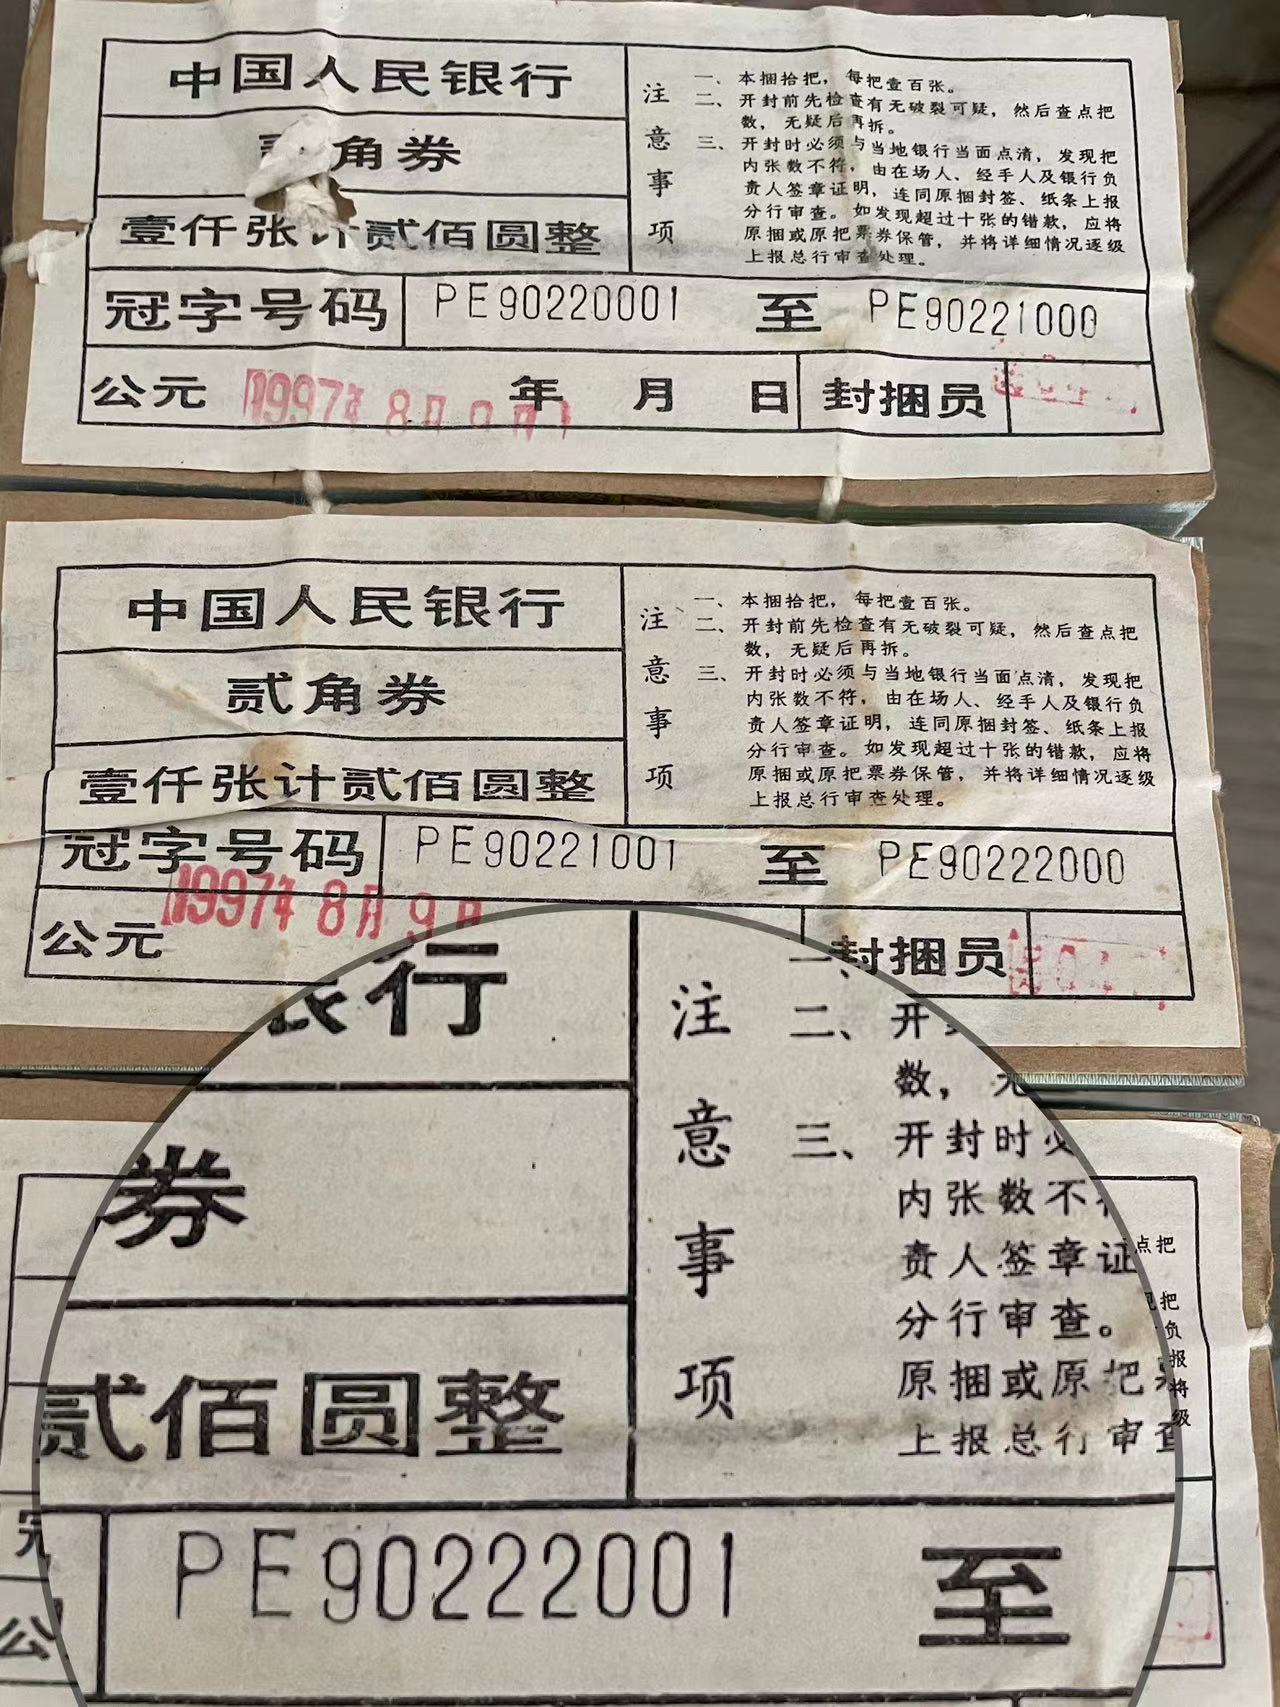 中国人民银行
角券
壹仟张计贰佰圆整
注意事项
一、本捆拾把，每把壹百张。
二、开封前先检查有无破裂可疑，然后查点把
数，无疑后再拆。
三、开封时必须与当地银行当面点清，发现把
内张数不符，由在场人、经手人及银行负
责人签章证明，连同原捆封签、纸条上报
分行审查。如发现超过十张的错款，应将
原捆或原把票券保管，并将详细情况逐级
上报总行审查处理。
冠字号码 PE90220001 至 PE90221000
公元 1997年8月 年 月 日 封捆员
中国人民银行
贰角券
壹仟张计贰佰圆整
注意事项
一、本捆拾把，每把壹百张。
二、开封前先检查有无破裂可疑，然后查点把
数，无疑后再拆。
三、开封时必须与当地银行当面点清，发现把
内张数不符，由在场人、经手人及银行负
责人签章证明，连同原捆封签、纸条上报
分行审查。如发现超过十张的错款，应将
原捆或原把票券保管，并将详细情况逐级
上报总行审查处理。
冠字号码 PE90221001 至 PE90222000
公元 1997年8月9日 封捆员
行
券
贰佰圆整
注意事项
二、开
数，无
三、开封时必
内张数不
责人签章证
分行审查。
原捆或原把
上报总行审查
点把
把
负
报
将
级
PE90222001 至
公